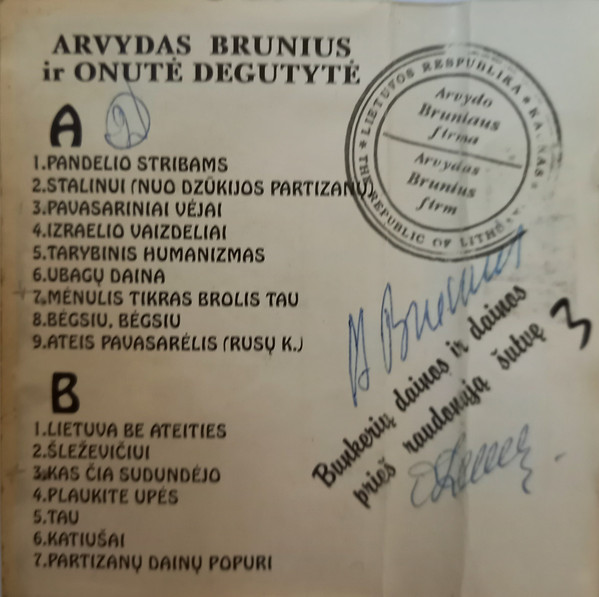 ARVYDAS BRUNIUS
ir ONUTĖ DEGUTYTĖ
A
1.PANDELIO STRIBAMS
2.STALINUI (NUO DZŪKIJOS PARTIZANŲ)
3.PAVASARINIAI VĖJAI
4.IZRAELIO VAIZDELIAI
5.TARYBINIS HUMANIZMAS
6.UBAGŲ DAINA
7.MĖNULIS TIKRAS BROLIS TAU
8.BĖGSIU, BĖGSIU
9.ATEIS PAVASARĖLIS (RUSŲ K.)
B
1.LIETUVA BE ATEITIES
2.ŠLEŽEVIČIUI
3.KAS ČIA SUDUNDĖJO
4.PLAUKITE UPĖS
5.TAU
6.KATIUŠAI
7.PARTIZANŲ DAINŲ POPURI
LIETUVOS RESPUBLIKA * KAUNAS *
Arvydo
Bruniaus
firma
Arvydas
Brunius
firm
THE REPUBLIC OF
A Brunius
Bunkerių dainos ir dainos
prieš raudonąją šutvę
3